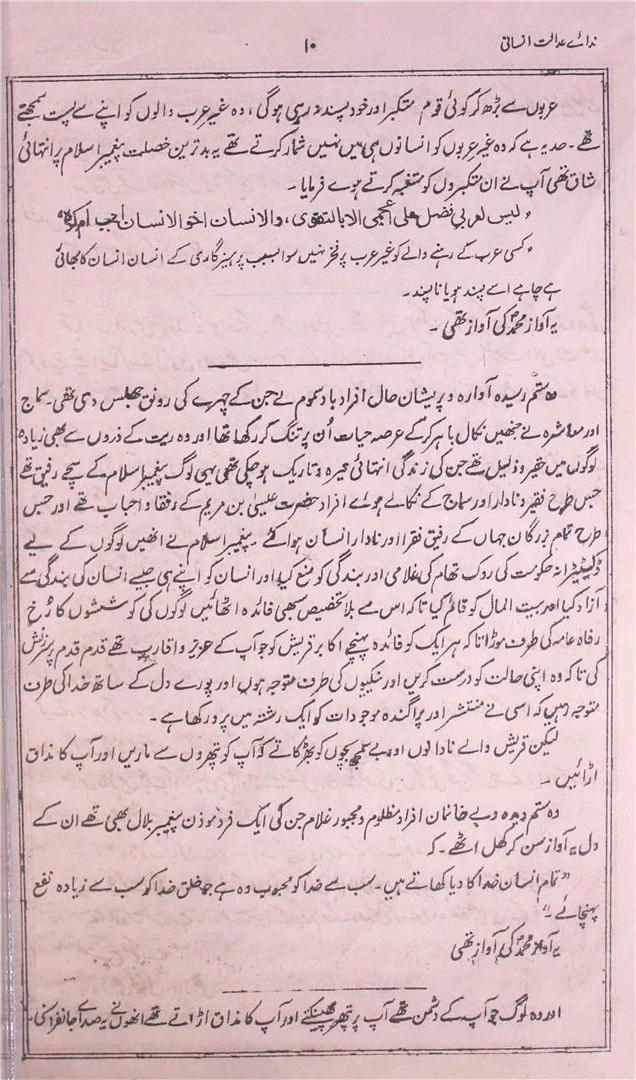 ندائے عدالت انسانی
۱۰
عربوں سے بڑھ کر کوئی قوم متکبر اور خود پسند نہ رہی ہوگی، وہ غیر عرب والوں کو اپنے سے پست سمجھتے
تھے۔ حد یہ ہے کہ وہ غیر عربوں کو انسانوں ہی میں نہیں شمار کرتے تھے یہ بدترین خصلت پیغمبر اسلام پر انتہائی
شاق تھی آپ نے ان متکبروں کو متنبہ کرتے ہوے فرمایا۔
"لیس لعربی فضل علی اعجمی الا بالتقوی، والانسان اخو الانسان احب ام کرہ"
"کسی عرب کے رہنے والے کو غیر عرب پر فخر نہیں سوا بسبب پرہیزگاری کے انسان انسان کا بھائی
ہے چاہے اسے پسند ہو یا ناپسند۔
یہ آواز محمدؐ کی آواز تھی۔
وہ ستم رسیدہ آوارہ و پریشان حال افراد باد سموم نے جن کے چہرے کی رونق جھلس دی تھی۔ سماج
اور معاشرہ نے جنھیں نکال باہر کر کے عرصہ حیات اُن پر تنگ کر رکھا تھا اور وہ ریت کے ذروں سے بھی زیادہ
لوگوں میں حقیر و ذلیل تھے جن کی زندگی انتہائی تیرہ و تاریک ہو چکی تھی یہی لوگ پیغمبر اسلام کے سچے رفیق تھے
جس طرح فقیر و نادار اور سماج کے نکالے ہوئے افراد حضرت عیسیٰ بن مریم کے رفقا و احباب تھے اور جس
طرح تمام بزرگان جہاں کے رفیق فقرا اور نادار انسان ہوا کئے۔ پیغمبر اسلام نے انھیں لوگوں کے لیے
ڈکٹیٹرانہ حکومت کی روک تھام کی غلامی اور بندگی کو منع کیا اور انسان کو اپنے ہی جیسے انسان کی بندگی سے
آزاد کیا اور بیت المال کو قائم کیا تاکہ اس سے بلا تخصیص سبھی فائدہ اٹھائیں لوگوں کی کوششوں کا رُخ
رفاہ عامہ کی طرف موڑا تاکہ ہر ایک کو فائدہ پہنچے اکابر قریش کو جو آپ کے عزیز و اقارب تھے قدم قدم پر سرزنش
کی تاکہ وہ اپنی حالت کو درست کریں اور نیکیوں کی طرف متوجہ ہوں اور پورے دل کے ساتھ خدا کی طرف
متوجہ رہیں کہ اسی نے منتشر اور پراگندہ موجودات کو ایک رشتہ میں پرو رکھا ہے۔
لیکن قریش والے نادانوں اور بے سمجھ بچوں کو بھڑکاتے کہ آپ کو پتھروں سے ماریں اور آپ کا مذاق
اڑائیں۔
وہ ستم دیدہ و بے خانماں افراد مظلوم و مجبور غلام جن کی ایک فرد موذن پیغمبر بلال بھی تھے ان کے
دل یہ آواز سن کر کھل اٹھے۔ کہ
"تمام انسان خدا کا دیا کھاتے ہیں۔ سب سے خدا کو محبوب وہ ہے جو خلق خدا کو سب سے زیادہ نفع
پہنچائے۔"
یہ آواز محمدؐ کی آواز تھی
اور وہ لوگ جو آپ کے دشمن تھے آپ پر پتھر پھینکتے اور آپ کا مذاق اڑاتے تھے انھوں نے یہ صدائے جانفزا سنی۔